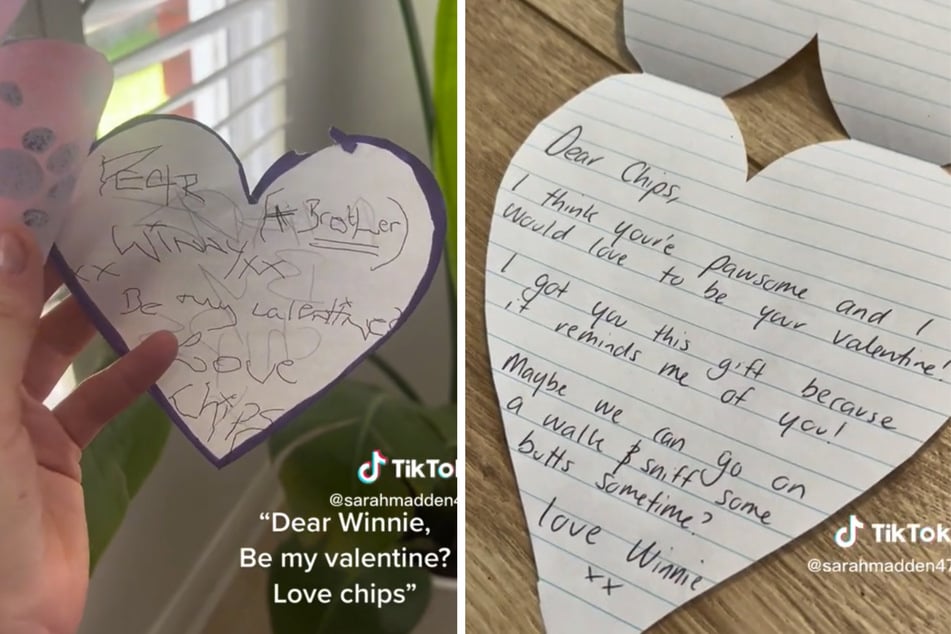 DEAR
(A Brother)
WINNY xx
xx
Be my valentine?
Love
CHIPS
TikTok
@sarahmadden4
“Dear Winnie,
Be my valentine?
Love chips”
Dear Chips,
I think you're pawsome and I
would love to be your valentine!
I got you this gift because
it reminds me of you!
Maybe we can go on
a walk & sniff some
butts sometime?
love Winnie
xx
TikTok
@sarahmadden47